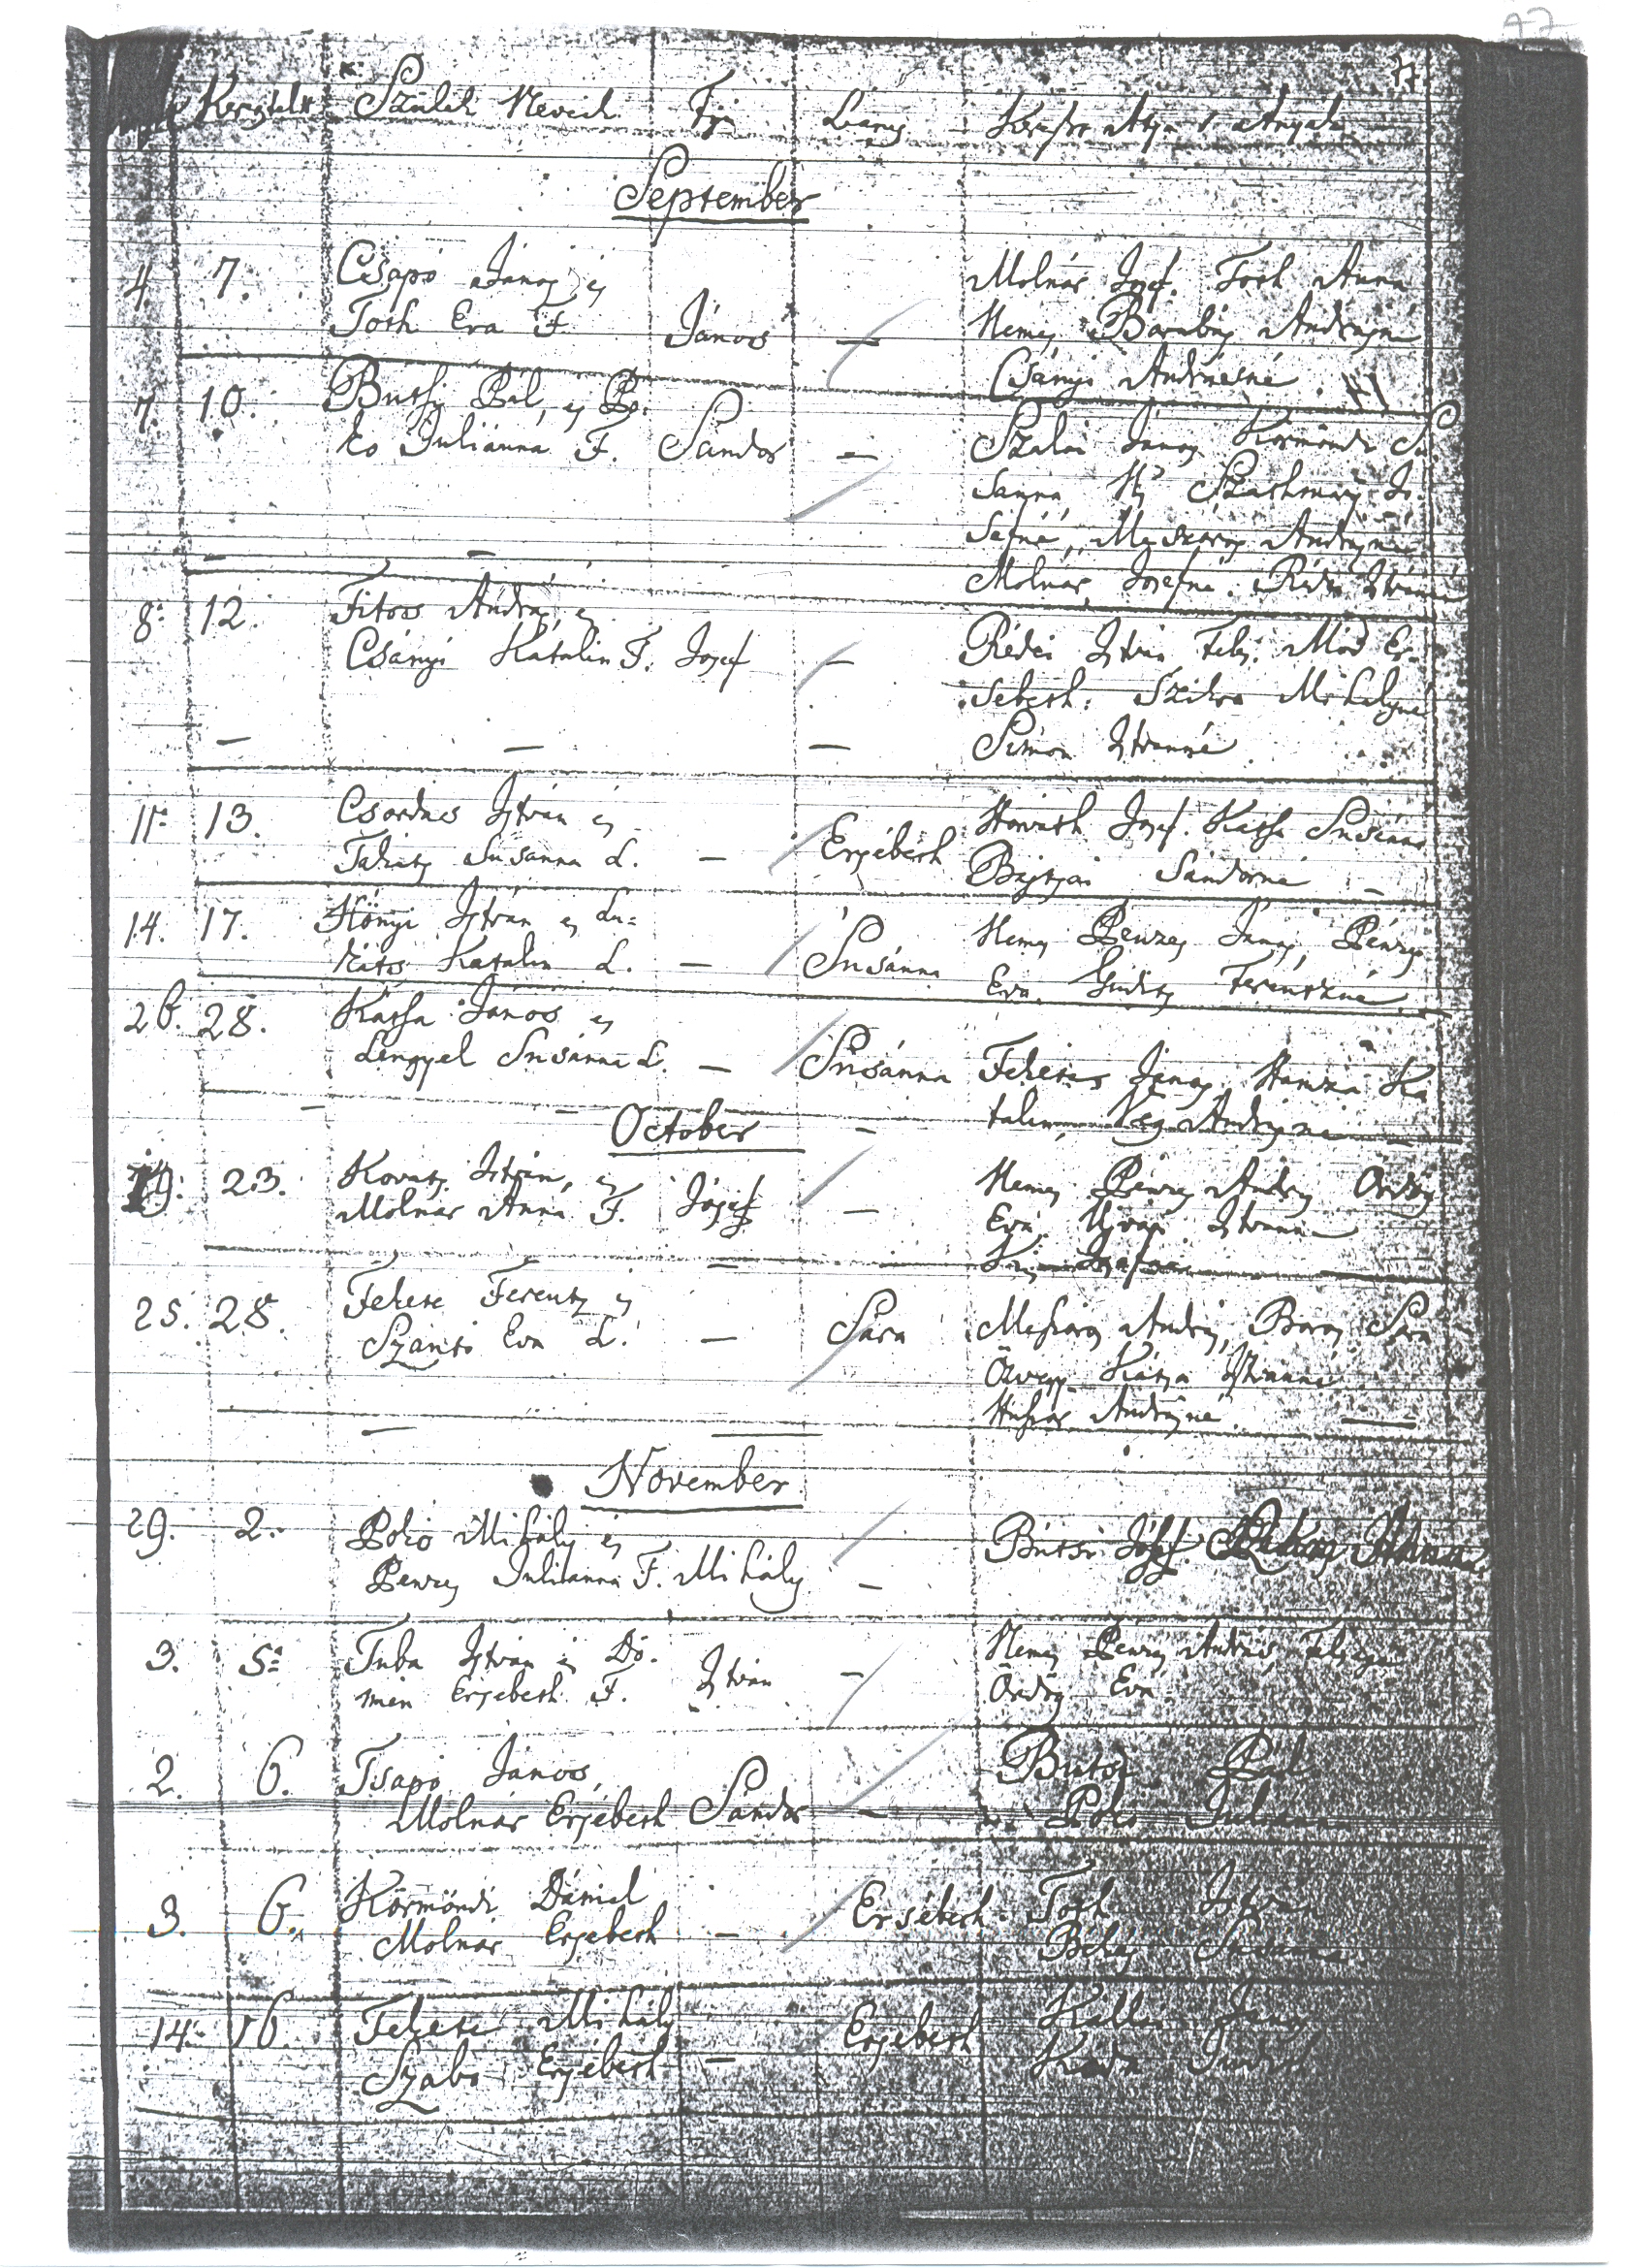 97
77
Keresztelt Szülék Neveik Fijú Leány Kereszt Attya s Annyok
September
4. 7. Csapó János és
Tóth Eva F. János — Molnár Josef. Tóth Anna
Nemes Barabás Andrásné
Csányi Andrásné.
7. 10. Butsi Pál, és Po-
ko Juliánna F. Sándor — Szalai János Körmöndi Su
sanna Ns Szathmáry Jo-
sefné, Meszáros Andrásné
Molnár Josefné. Rédei Istvánné
8. 12. Fitos András és
Csányi Katalin F. Josef — Rédei István Felesé. Mód Er-
sebeth. Szikra Mihályné
Simon Istvanné
11. 13. Csordás István és
Takáts Susanna L. — Ersébeth Horváth Josef. Katsa Susánna
Sándorné
14. 17. Hönyi István és Lu=
káts Katalin L. — Susánna Nemes Penzes János, Pénzes
Eva. Ferentzné
26. 28. Katsa János és
Lengyel Susánna L. — Susánna Fekete János, Hamza Ka
talin, Vég Andrásné
October
19. 23. Kovats István, és
Molnár Anna F. Jósef — Nemes Pénzes András Ördög
Eva. Ujvári Istvanné
Kis Josefné
25. 28. Fekete Ferentz és
Szántó Eva L. — Sára Meszáros András, Baray Sára
Özvegy Katza Istvanné
Huszár Andrásné.
November
29. 2. Poko Mihály és
Penzes Julianna F. Mihály — Butsi Jósef.
3. 5. Tuba István és Dö-
mén Ersebeth F. István — Nemes Penzes András, Felesége
Ördög Eva.
2. 6. Tsapó János,
Molnár Ersébeth Sándor — Butsi Pál
Poko Julianna
3. 6. Körmöndi Dániel
Molnár Ersebeth — Ersébeth. Tóth István
Susánna
14. 16. Fekete Mihály
Szabo Ersébeth — Ersebeth Kallai János
Judith